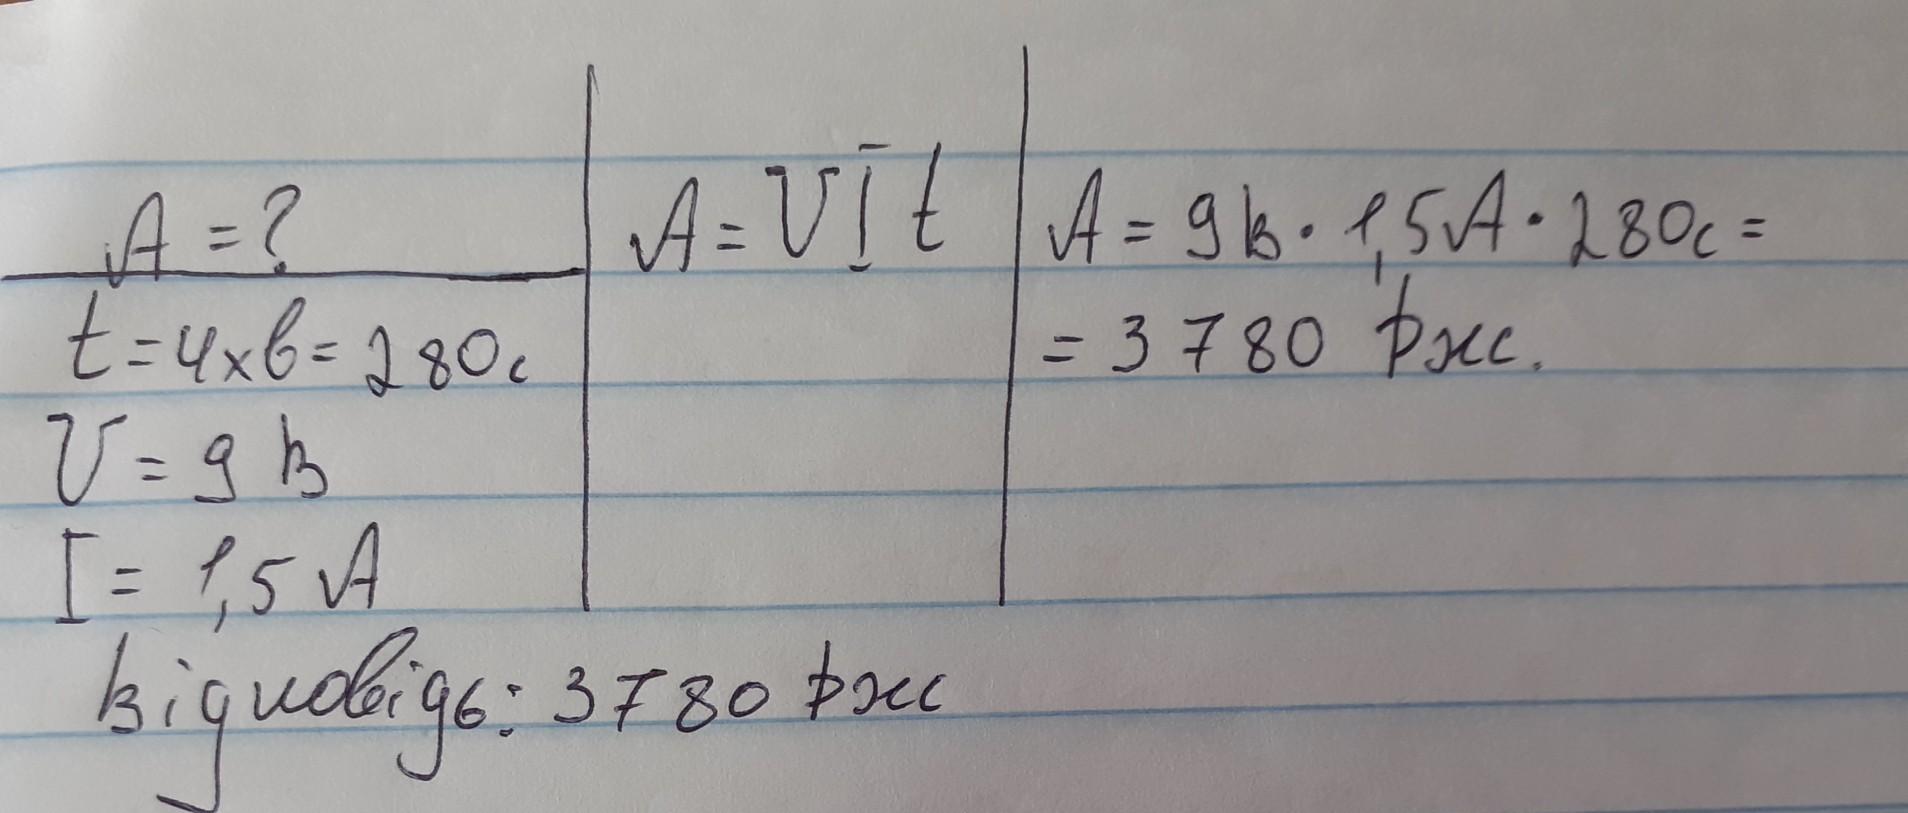 A = ?
t = 4 хв = 280 с
U = 9 В
I = 1,5 А
A = U I t
A = 9 В · 1,5 А · 280 с =
= 3 780 Джс.
Відповідь: 3780 Джс